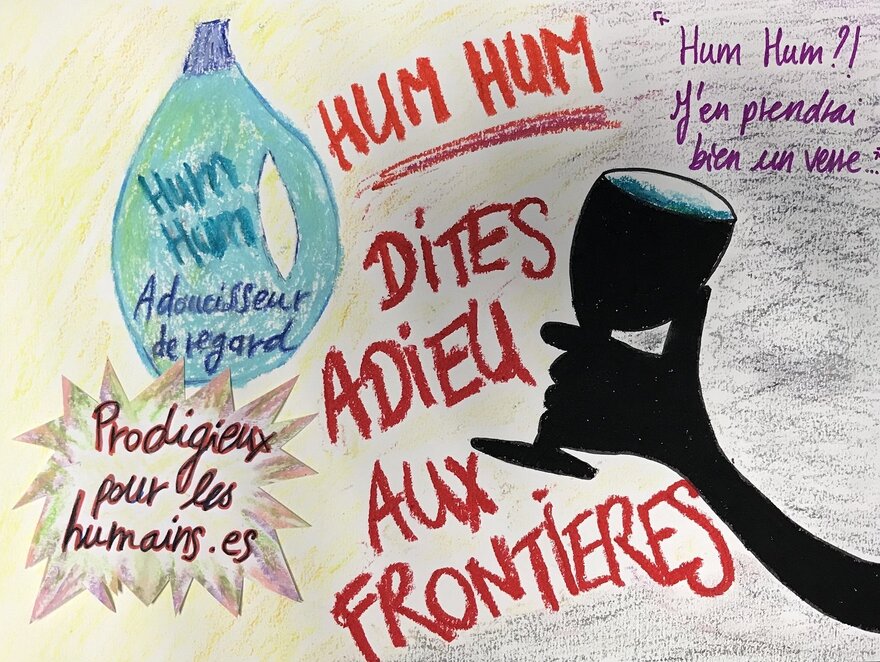 HUM HUM
Hum Hum ?!
J'en prendrai
bien un verre...
Hum
Hum
Adoucisseur
de regard
DITES
ADIEU
AUX
FRONTIERES
Prodigieux
pour les
humains.es